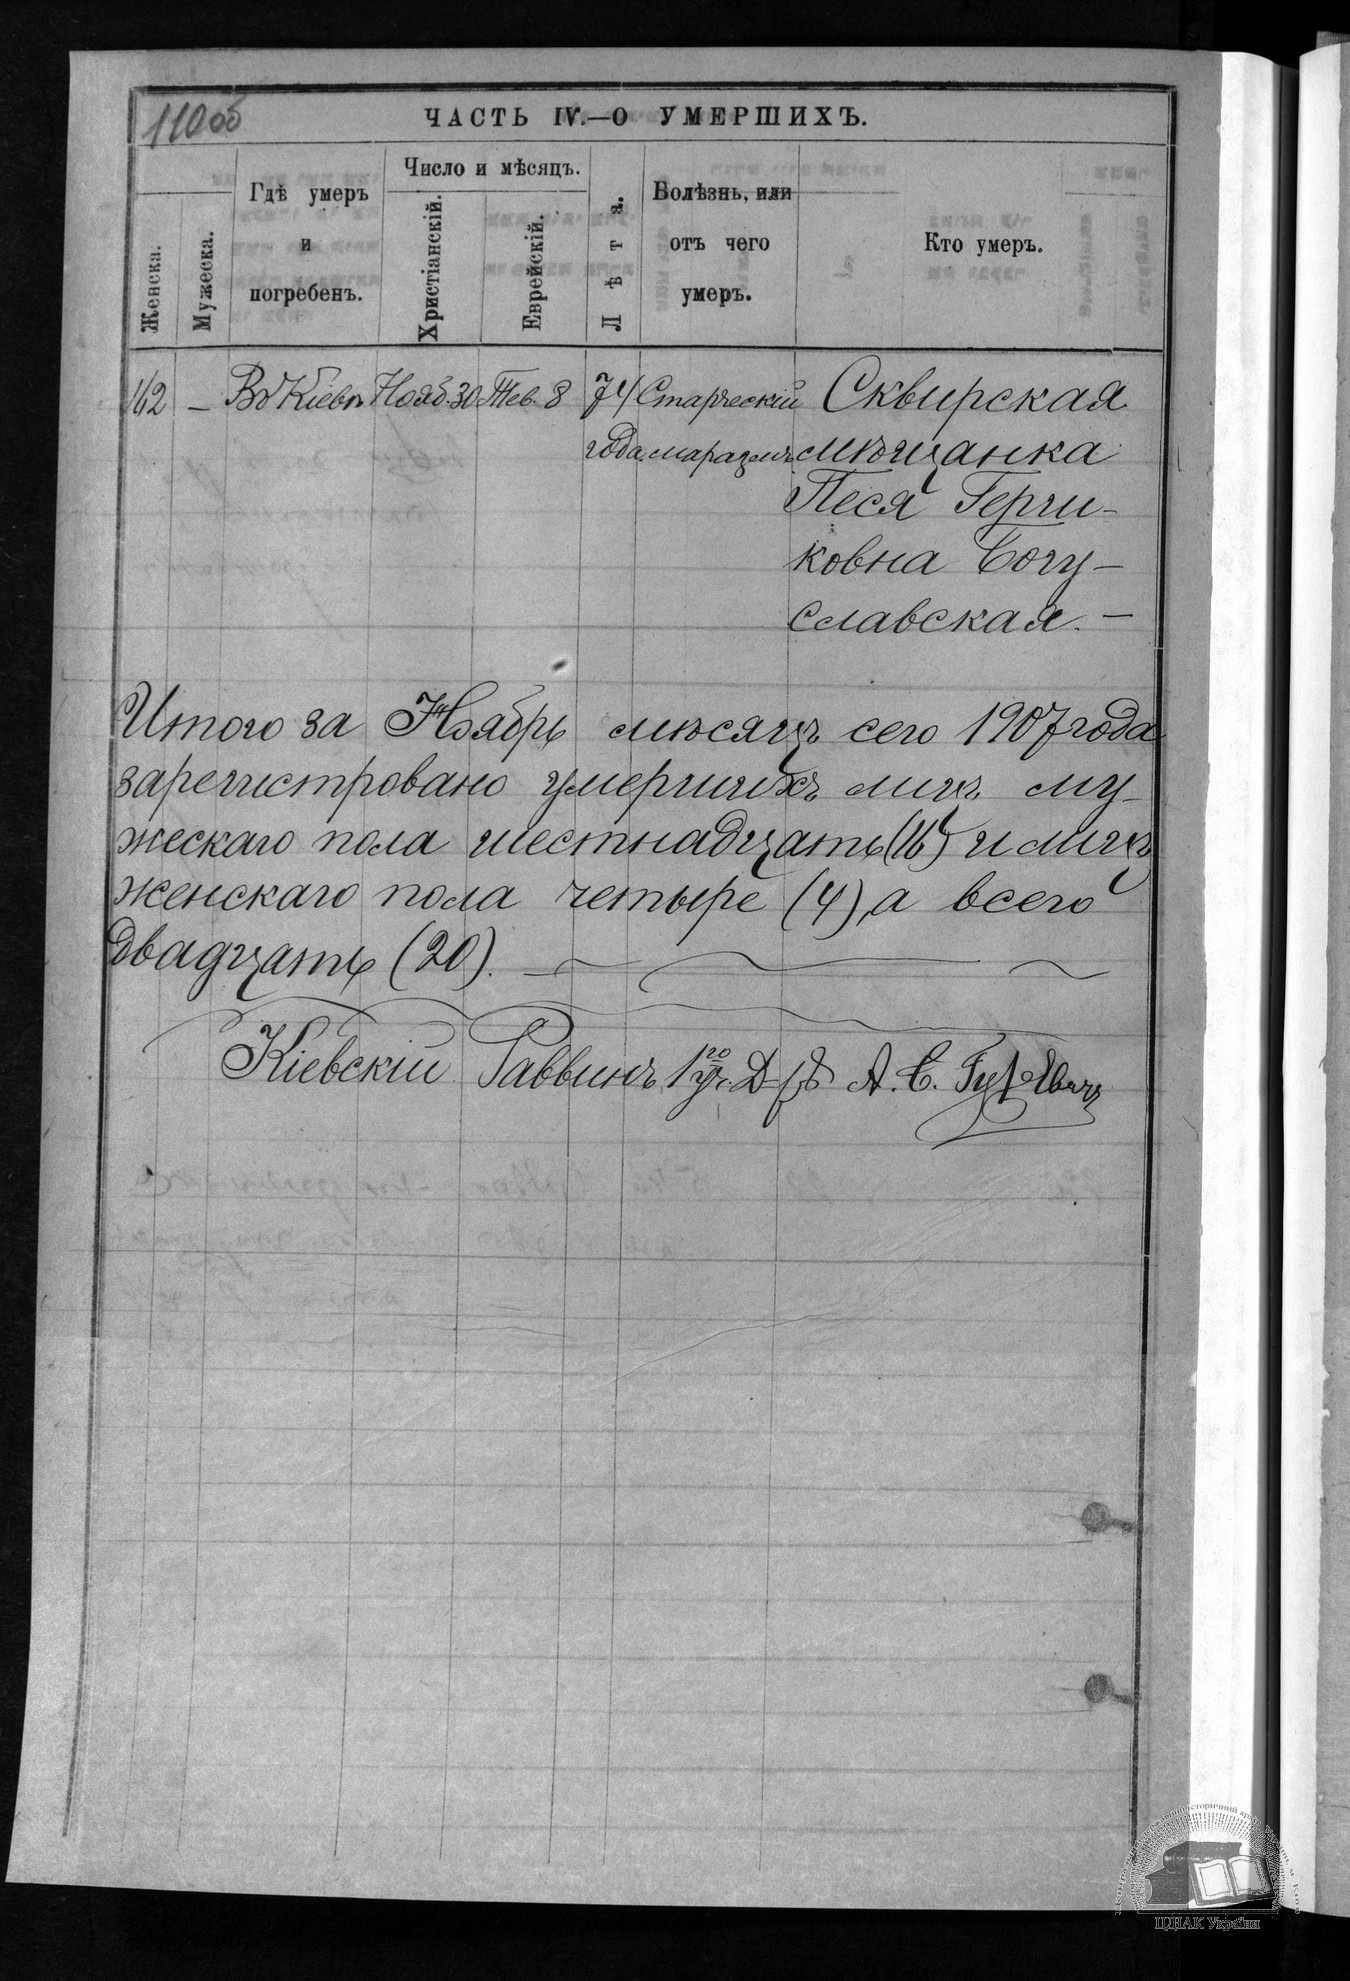 110об
ЧАСТЬ IV.—О УМЕРШИХЪ.
Женска.
Мужеска.
Гдѣ умеръ
и
погребенъ.
Число и мѣсяцъ.
Христіанскій.
Еврейскій.
Лѣта.
Болѣзнь, или
отъ чего
умеръ.
Кто умеръ.
162 — Въ Кіевѣ Нояб. 30 Тев. 8 74 Старческій Сквирская
года. маразмъ мѣщанка
Песя Герш-
ковна Богу-
славская. —
Итого за Ноябрь мѣсяцъ сего 1907 года
зарегистровано умершихъ лицъ му-
жескаго пола шестнадцать (16) и лицъ
женскаго пола четыре (4), а всего
двадцать (20).
Кіевскій Раввинъ 1го уч. Д-ръ А. Б. Гуревичъ
ЦДІАК України